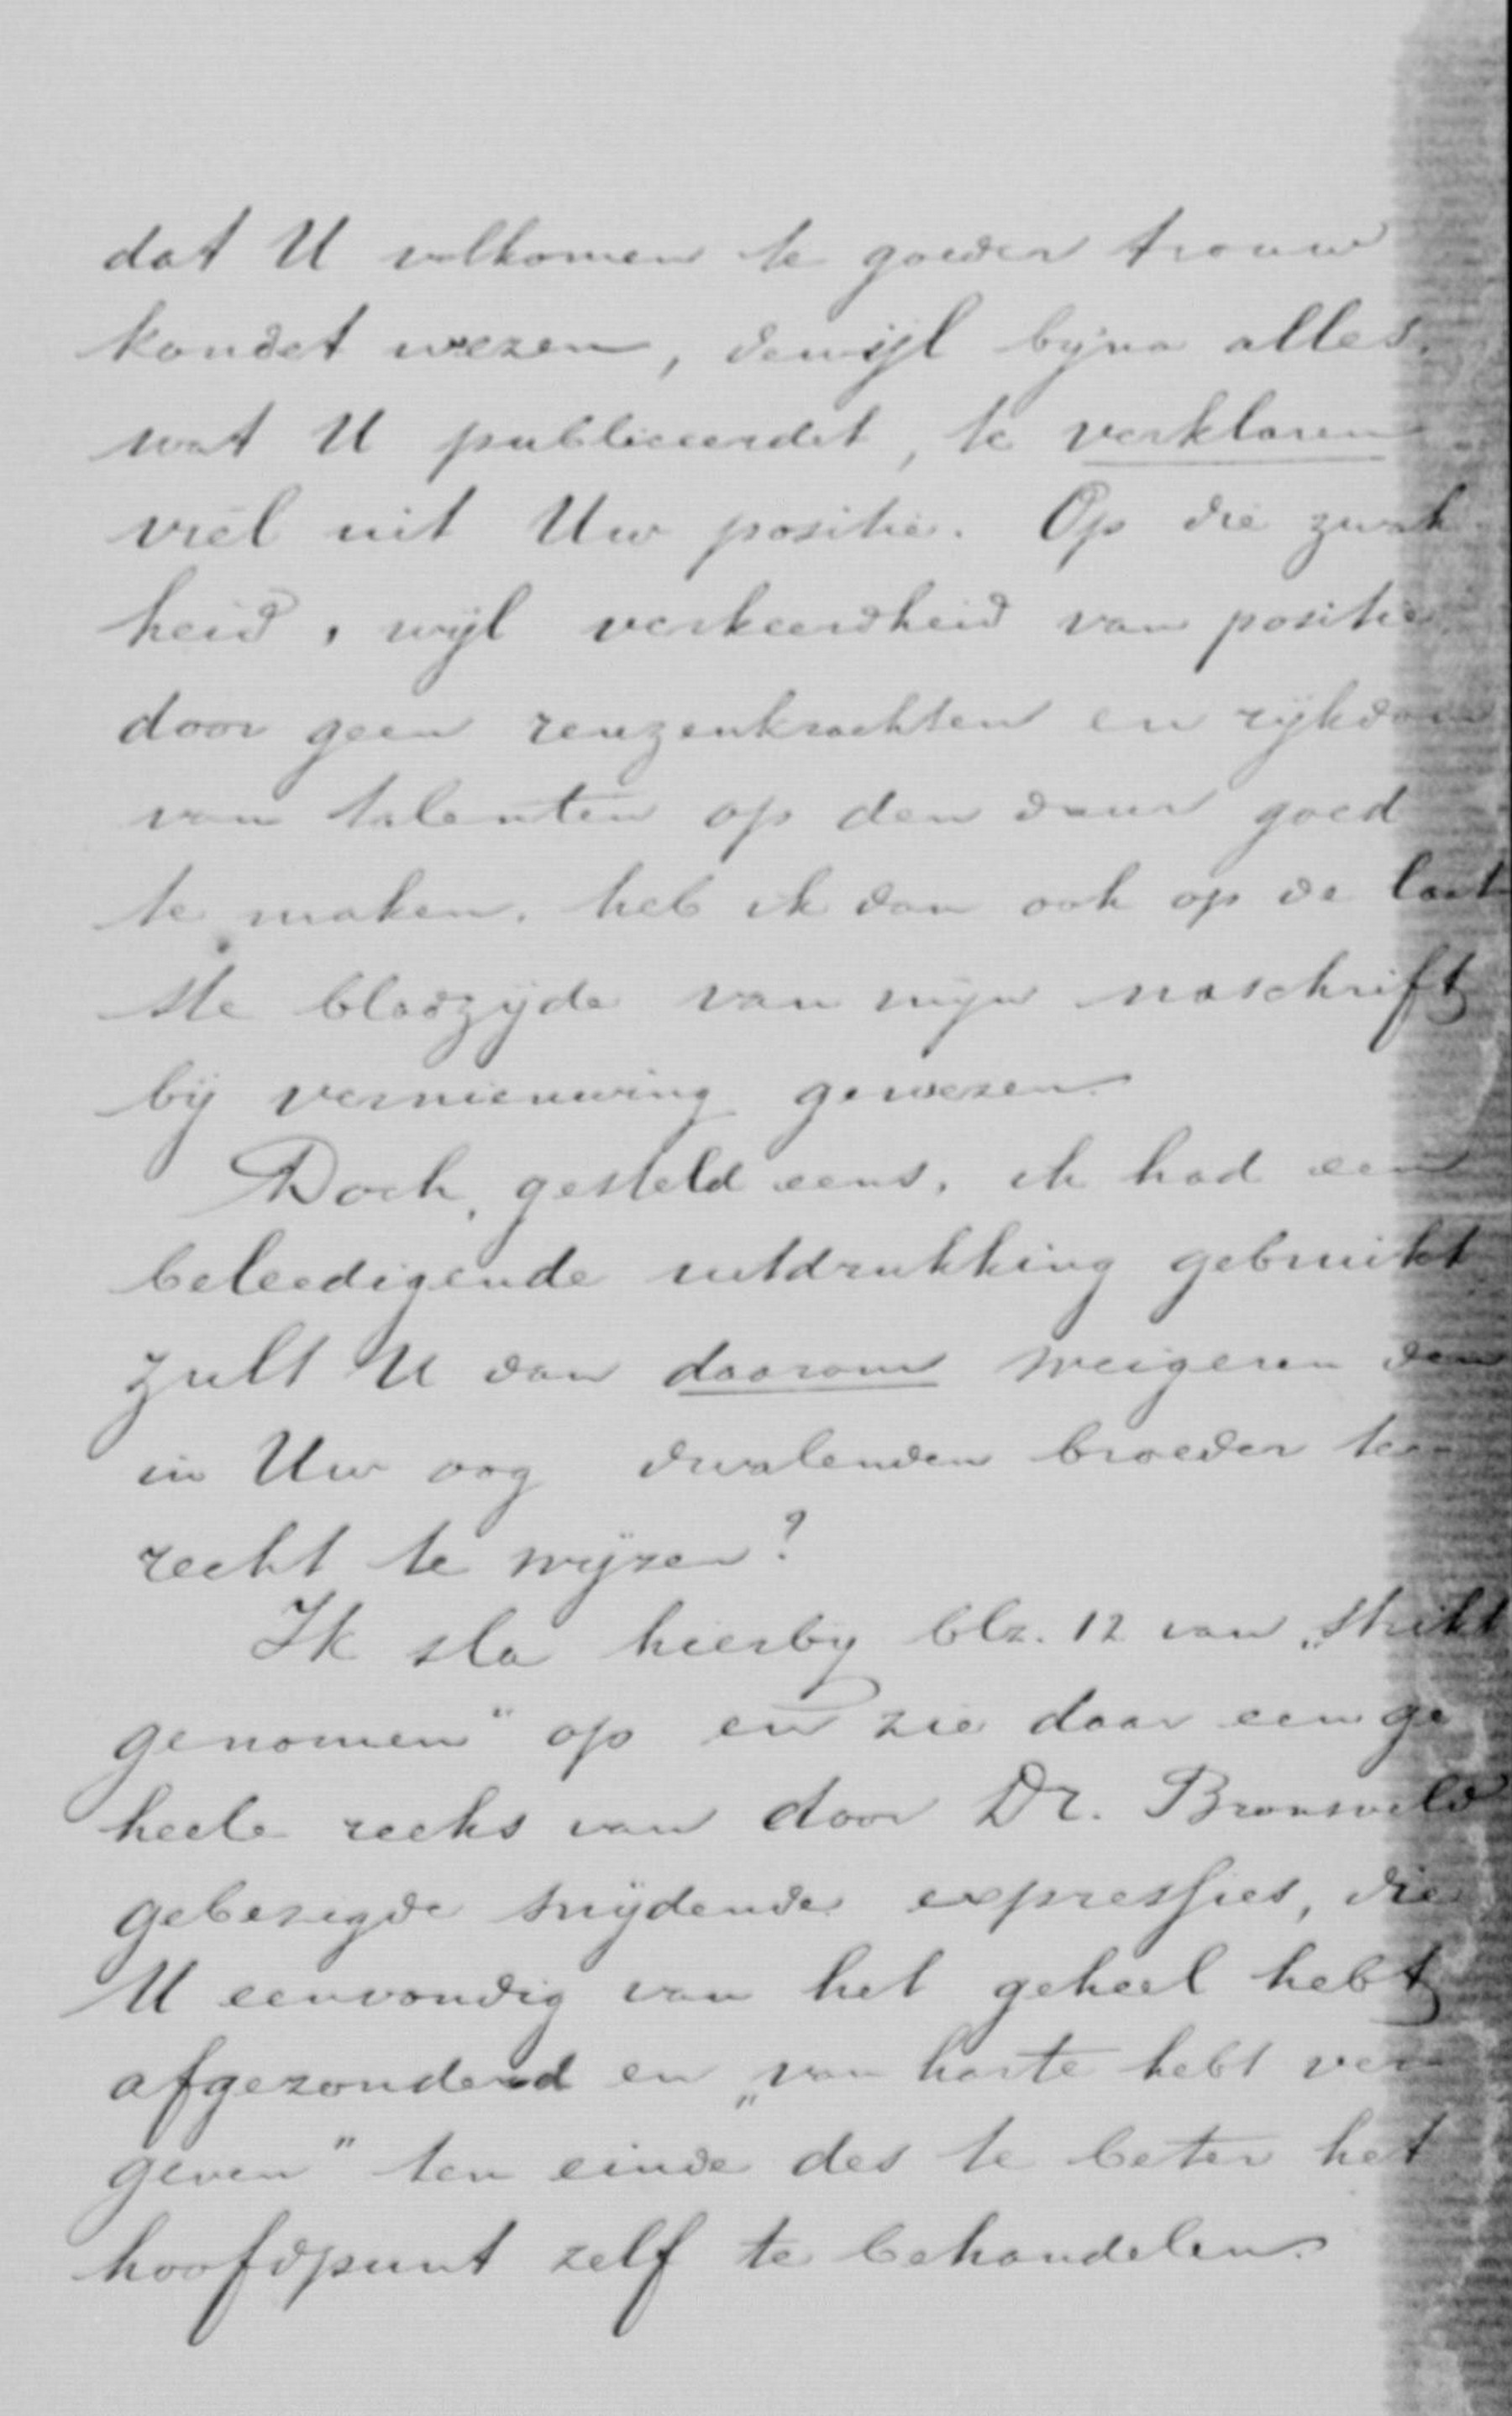 dat U volkomen te goeder trouw
kondet wezen, dewijl bijna alles,
wat U publiceerdet, te verklaren
viel uit Uw positie. Op die zwak
heid, wijl verkeerdheid van positie
door geen reuzenkrachten en rijkdom
van talenten op den duur goed
te maken, heb ik dan ook op de laat
ste bladzijde van mijn naschrift
bij vernieuwing gewezen.
Doch, gesteld eens, ik had een
beleedigende uitdrukking gebruikt
zult U dan daarom weigeren den
in Uw oog dwalenden broeder te-
recht te wijzen?
Ik sla hierbij blz. 12 van „Strikt
genomen" op en zie daar een ge
heele reeks van door Dr. Bronsveld
gebezigde snijdende expressies, die
U eenvoudig van het geheel hebt
afgezonderd en „van harte hebt ver-
geven" ten einde des te beter het
hoofdpunt zelf te behandelen.